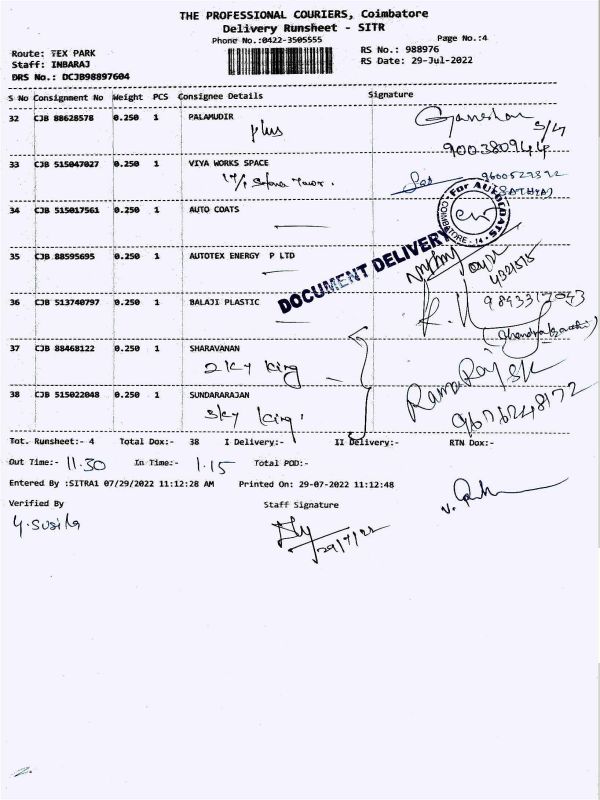 THE PROFESSIONAL COURIERS, Coimbatore
Delivery Runsheet - SITR
Phone No.:0422-3505555 Page No.:4
Route: TEX PARK RS No.: 988976
Staff: INBARAJ RS Date: 29-Jul-2022
DRS No.: DCJB98897604
S No Consignment No Weight PCS Consignee Details Signature
32 CJB 88628578 0.250 1 PALAMUDIR
plus
Ganeshan
9003809444
33 CJB 515047027 0.250 1 VIYA WORKS SPACE
9600527872
(SATHYA)
34 CJB 515017561 0.250 1 AUTO COATS
For AUTOCOATS
COIMBATORE - 14
35 CJB 88595695 0.250 1 AUTOTEX ENERGY P LTD
DOCUMENT DELIVERY
36 CJB 513740797 0.250 1 BALAJI PLASTIC
37 CJB 88468122 0.250 1 SHARAVANAN
sky king
38 CJB 515022048 0.250 1 SUNDARARAJAN
sky king
RamaRaj SK
9676248172
Tot. Runsheet:- 4 Total Dox:- 38 I Delivery:- II Delivery:- RTN Dox:-
Out Time:- 11.30 In Time:- 1.15 Total POD:-
Entered By :SITRA1 07/29/2022 11:12:28 AM Printed On: 29-07-2022 11:12:48
Verified By Staff Signature
Y. Susila
29/7/22